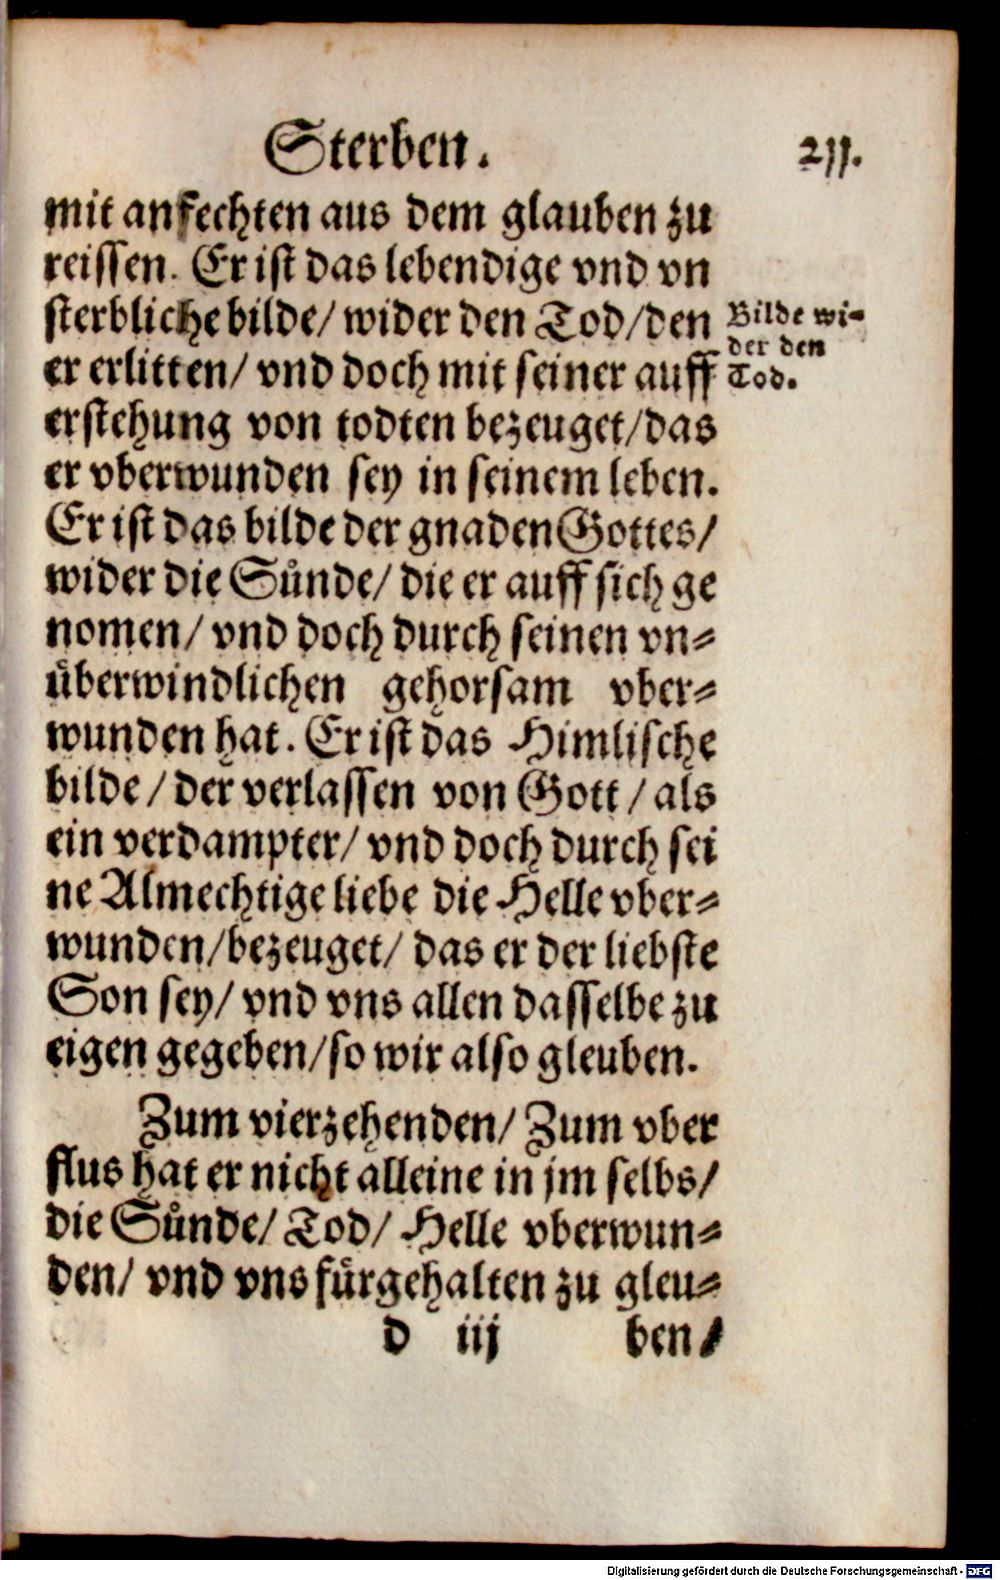 Sterben. 211.
mit anfechten aus dem glauben zu
reissen. Er ist das lebendige vnd vn
sterbliche bilde/ wider den Tod/den
Bilde wi-
der den
Tod.
er erlitten/ vnd doch mit seiner auff
erstehung von todten bezeuget/das
er vberwunden sey in seinem leben.
Er ist das bilde der gnaden Gottes/
wider die Sůnde/ die er auff sich ge
nomen/ vnd doch durch seinen vn-
ůberwindlichen gehorsam vber-
wunden hat. Er ist das Himlische
bilde/ der verlassen von Gott/ als
ein verdampter/ vnd doch durch sei
ne Almechtige liebe die Helle vber-
wunden/bezeuget/ das er der liebste
Son sey/ vnd vns allen dasselbe zu
eigen gegeben/so wir also gleuben.
Zum vierzehenden/ Zum vber
flus hat er nicht alleine in jm selbs/
die Sůnde/ Tod/ Helle vberwun-
den/ vnd vns fůrgehalten zu gleu-
d iij ben/
Digitalisierung gefördert durch die Deutsche Forschungsgemeinschaft - DFG